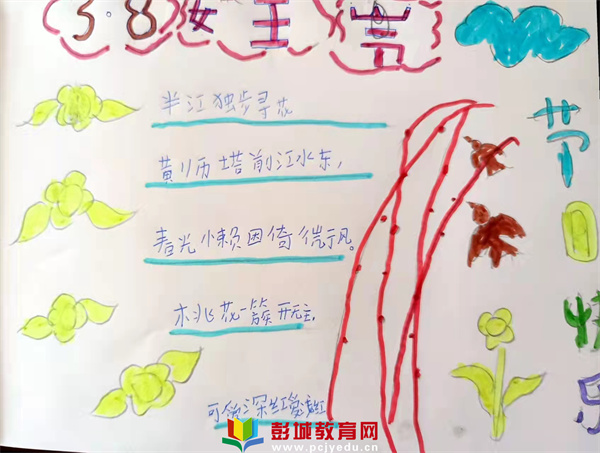 3.8 女王
节
日
快
乐
半江独步寻花
黄师塔前江水东，
春光懒困倚微风。
桃花一簇开无主，
可爱深红爱浅红
彭城教育网
www.pcjyedu.cn